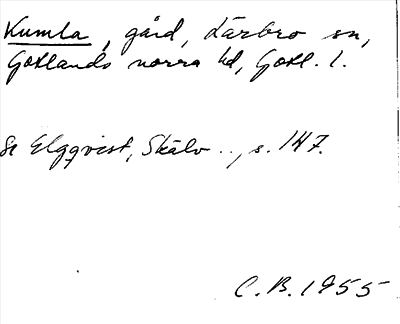 Kumla, gård, Lärbro sn,
Gotlands norra hd, Gotl. l.
Se Elgqvist, Skälv .., s. 147.
C.B. 1955